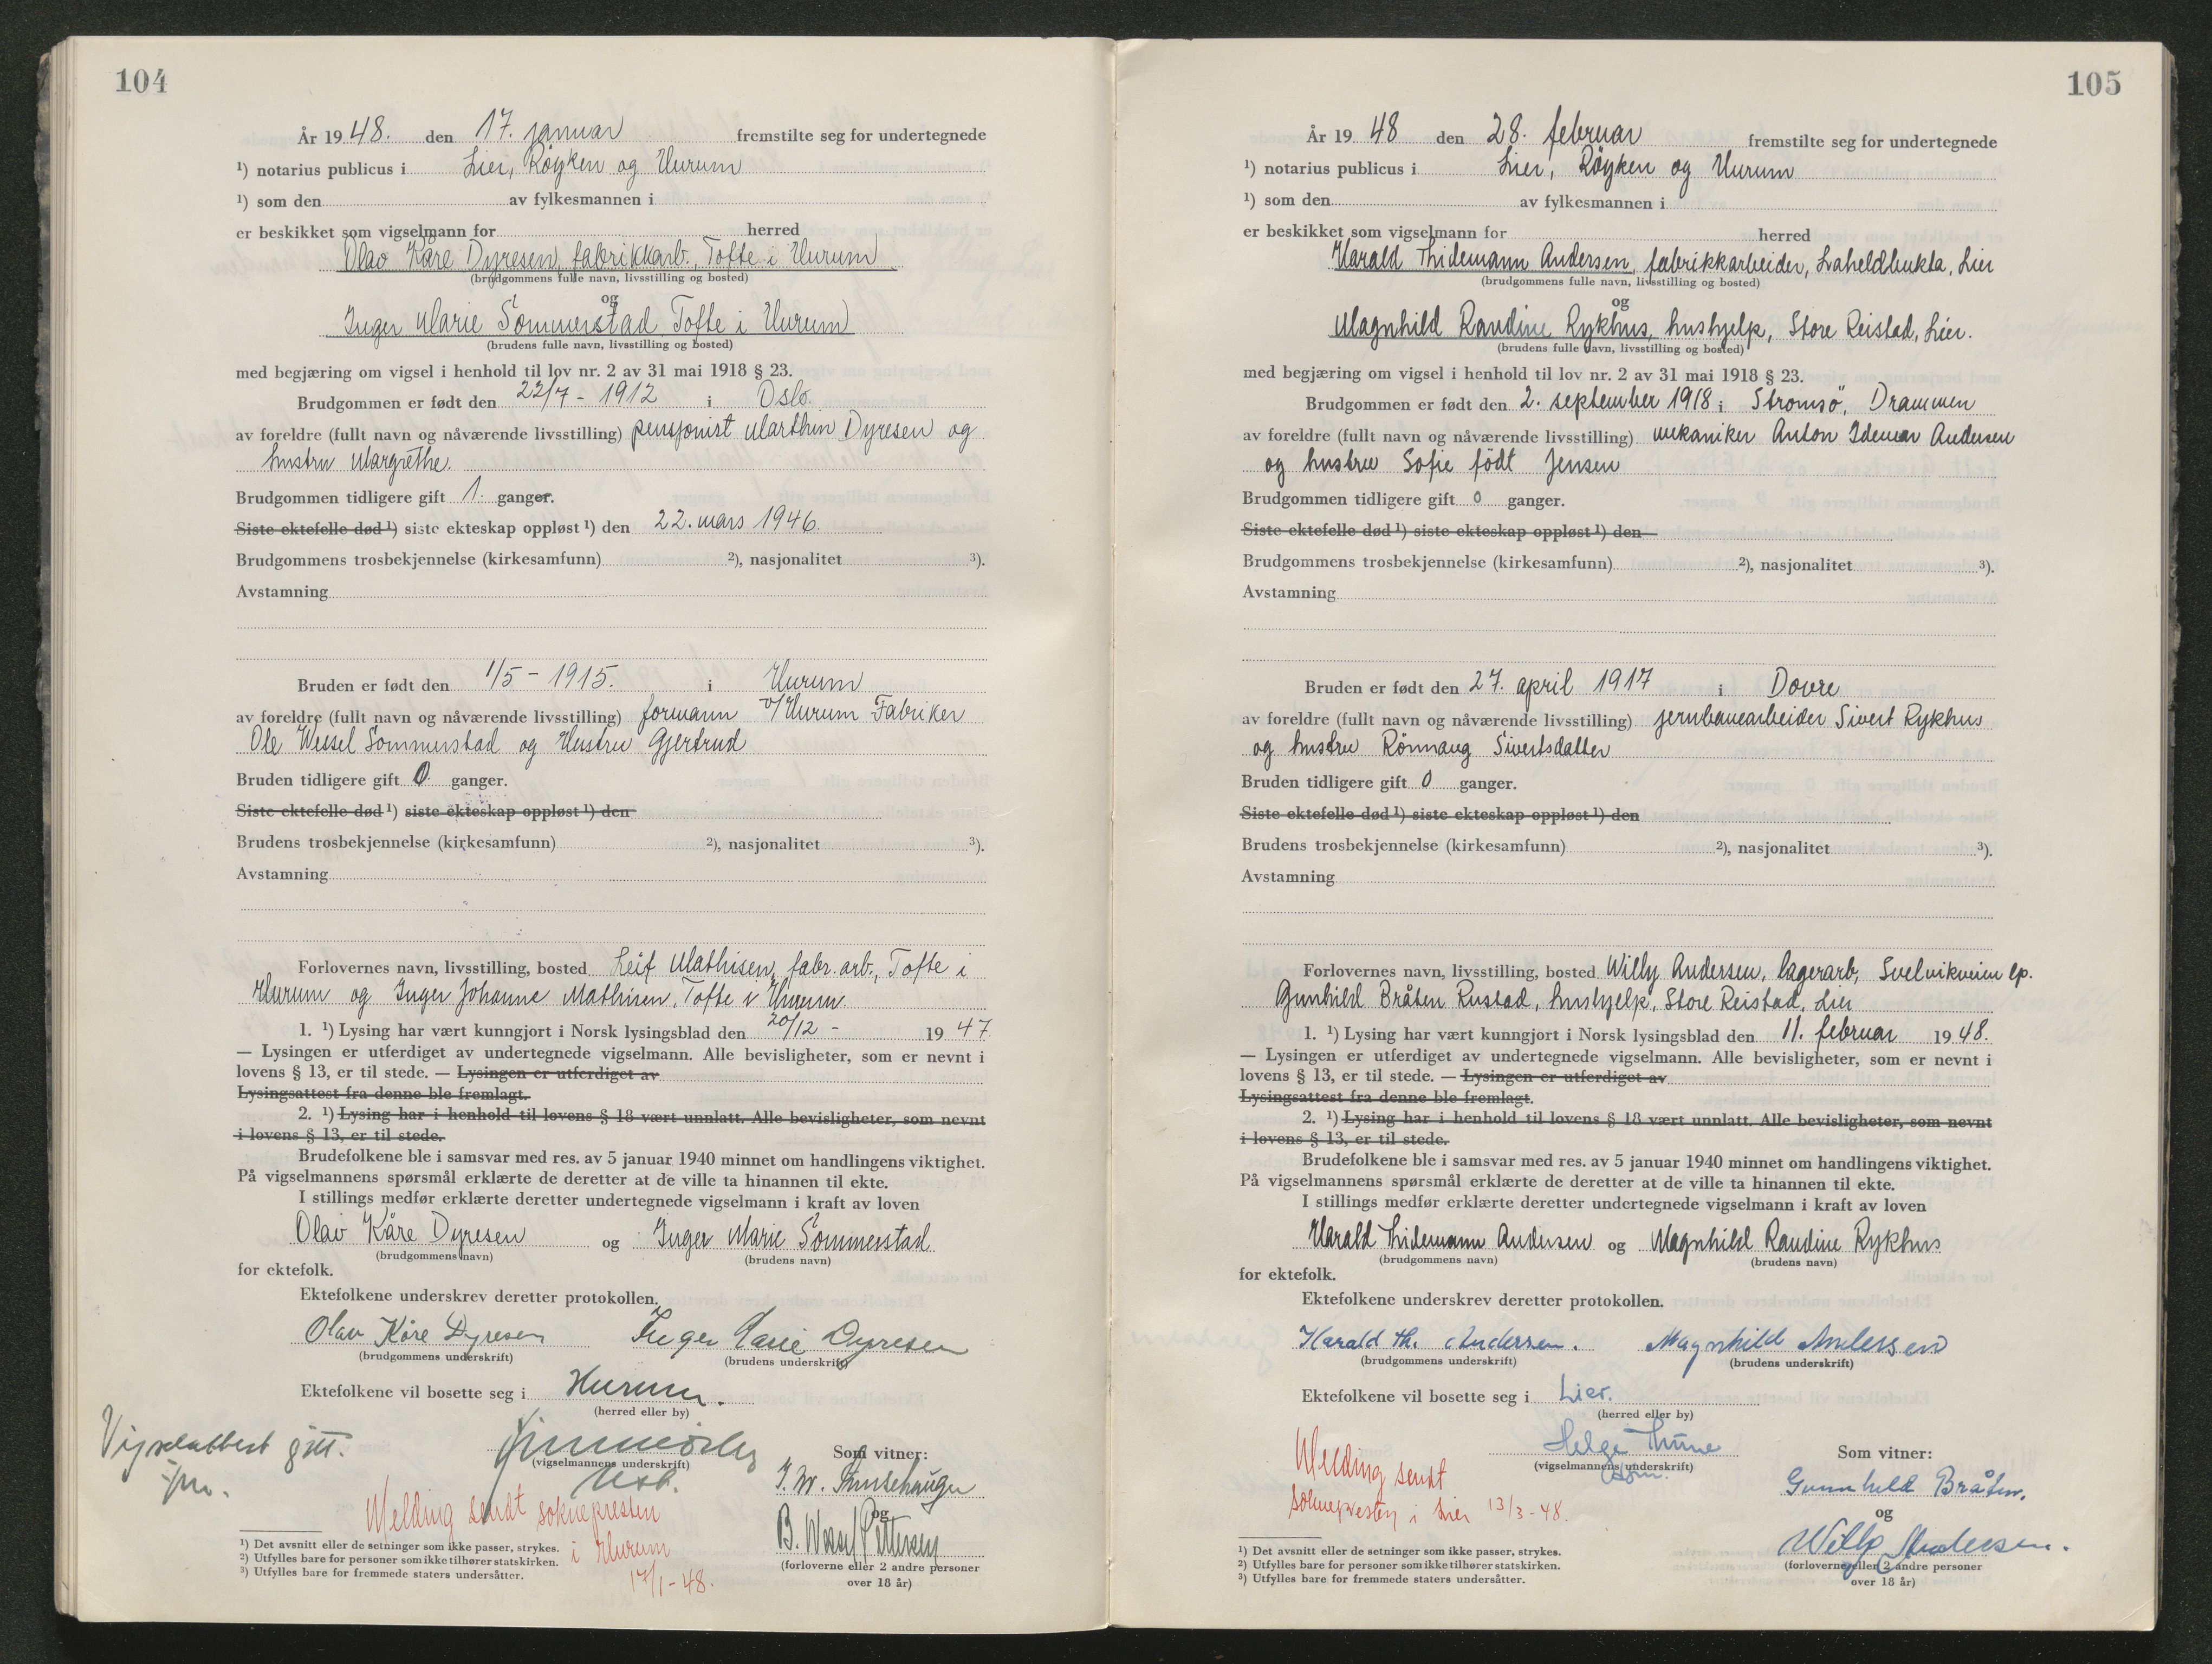 104
År 19 48. den 17. januar fremstilte seg for undertegnede
¹) notarius publicus i Lier, Röyken og Hurum
¹) som den av fylkesmannen i
er beskikket som vigselmann for herred
Olav Kåre Dyresen, fabrikkarb., Tofte i Hurum
(brudgommens fulle navn, livsstilling og bosted)
og
Inger Marie Sommerstad Tofte i Hurum
(brudens fulle navn, livsstilling og bosted)
med begjæring om vigsel i henhold til lov nr. 2 av 31 mai 1918 § 23.
Brudgommen er født den 22/7 - 1912 i Oslo.
av foreldre (fullt navn og nåværende livsstilling) pensjonist Marthin Dyresen og
hustru Margrethe.
Brudgommen tidligere gift 1. ganger.
Siste ektefelle død ¹) siste ekteskap oppløst ¹) den 22. mars 1946.
Brudgommens trosbekjennelse (kirkesamfunn) ²), nasjonalitet ³).
Avstamning
Bruden er født den 1/5 - 1915. i Hurum
av foreldre (fullt navn og nåværende livsstilling) formann v/Hurum Fabriker
Ole Wessel Sommerstad og Hustru Gjertrud
Bruden tidligere gift 0 ganger.
Siste ektefelle død ¹) siste ekteskap oppløst ¹) den
Brudens trosbekjennelse (kirkesamfunn) ²), nasjonalitet ³).
Avstamning
Forlovernes navn, livsstilling, bosted Leif Mathisen, fabr. arb., Tofte i
Hurum og Inger Johanne Mathisen, Tofte i Hurum.
1. ¹) Lysing har vært kunngjort i Norsk lysingsblad den 20/12 - 19 47
— Lysingen er utferdiget av undertegnede vigselmann. Alle bevisligheter, som er nevnt i
lovens § 13, er til stede. — Lysingen er utferdiget av
Lysingsattest fra denne ble fremlagt.
2. ¹) Lysing har i henhold til lovens § 18 vært unnlatt. Alle bevisligheter, som nevnt
i lovens § 13, er til stede.
Brudefolkene ble i samsvar med res. av 5 januar 1940 minnet om handlingens viktighet.
På vigselmannens spørsmål erklærte de deretter at de ville ta hinannen til ekte.
I stillings medfør erklærte deretter undertegnede vigselmann i kraft av loven
Olav Kåre Dyresen og Inger Marie Sommerstad
(brudgommens navn) (brudens navn)
for ektefolk.
Ektefolkene underskrev deretter protokollen.
Olav Kåre Dyresen Inger Marie Dyresen
(brudgommens underskrift) (brudens underskrift)
Ektefolkene vil bosette seg i Hurum.
(herred eller by)
Vigselattest gitt.
Som vitner:
(vigselmannens underskrift)
Melding sendt soknepresten
i Hurum
17/1-48.
og
B. Wessel Pettersen
(forloverne eller 2 andre personer
over 18 år)
¹) Det avsnitt eller de setninger som ikke passer, strykes.
²) Utfylles bare for personer som ikke tilhører statskirken.
³) Utfylles bare for fremmede staters undersåtter.
105
År 19 48 den 28. februar fremstilte seg for undertegnede
¹) notarius publicus i Lier, Röyken og Hurum
¹) som den av fylkesmannen i
er beskikket som vigselmann for herred
Harald Thidemann Andersen, fabrikkarbeider, Laheldbukta, Lier
(brudgommens fulle navn, livsstilling og bosted)
og
Magnhild Randine Rykhus, hushjelp, Store Reistad, Lier.
(brudens fulle navn, livsstilling og bosted)
med begjæring om vigsel i henhold til lov nr. 2 av 31 mai 1918 § 23.
Brudgommen er født den 2. september 1918 i Strömsö, Drammen
av foreldre (fullt navn og nåværende livsstilling) mekaniker Anton Idemar Andersen
og hustru Sofie födt Jensen
Brudgommen tidligere gift 0 ganger.
Siste ektefelle død ¹) siste ekteskap oppløst ¹) den
Brudgommens trosbekjennelse (kirkesamfunn) ²), nasjonalitet ³).
Avstamning
Bruden er født den 27. april 1917 i Dovre
av foreldre (fullt navn og nåværende livsstilling) jernbanearbeider Sivert Rykhus
og hustru Rönnaug Sivertsdatter
Bruden tidligere gift 0 ganger.
Siste ektefelle død ¹) siste ekteskap oppløst ¹) den
Brudens trosbekjennelse (kirkesamfunn) ²), nasjonalitet ³).
Avstamning
Forlovernes navn, livsstilling, bosted Willy Andersen, lagerarb, Svelvikveien
Gunhild Bråten Rustad, hushjelp, Store Reistad, Lier
1. ¹) Lysing har vært kunngjort i Norsk lysingsblad den 11. februar 19 48.
— Lysingen er utferdiget av undertegnede vigselmann. Alle bevisligheter, som er nevnt i
lovens § 13, er til stede. — Lysingen er utferdiget av
Lysingsattest fra denne ble fremlagt.
2. ¹) Lysing har i henhold til lovens § 18 vært unnlatt. Alle bevisligheter, som nevnt
i lovens § 13, er til stede.
Brudefolkene ble i samsvar med res. av 5 januar 1940 minnet om handlingens viktighet.
På vigselmannens spørsmål erklærte de deretter at de ville ta hinannen til ekte.
I stillings medfør erklærte deretter undertegnede vigselmann i kraft av loven
Harald Thidemann Andersen og Magnhild Randine Rykhus
(brudgommens navn) (brudens navn)
for ektefolk.
Ektefolkene underskrev deretter protokollen.
Harald Th. Andersen. Magnhild Andersen
(brudgommens underskrift) (brudens underskrift)
Ektefolkene vil bosette seg i Lier.
(herred eller by)
Helge Thune
(vigselmannens underskrift)
Som vitner:
Melding sendt
soknepresten i Lier 13/3-48.
Gunnhild Bråten.
og
Willy Andersen.
(forloverne eller 2 andre personer
over 18 år)
¹) Det avsnitt eller de setninger som ikke passer, strykes.
²) Utfylles bare for personer som ikke tilhører statskirken.
³) Utfylles bare for fremmede staters undersåtter.